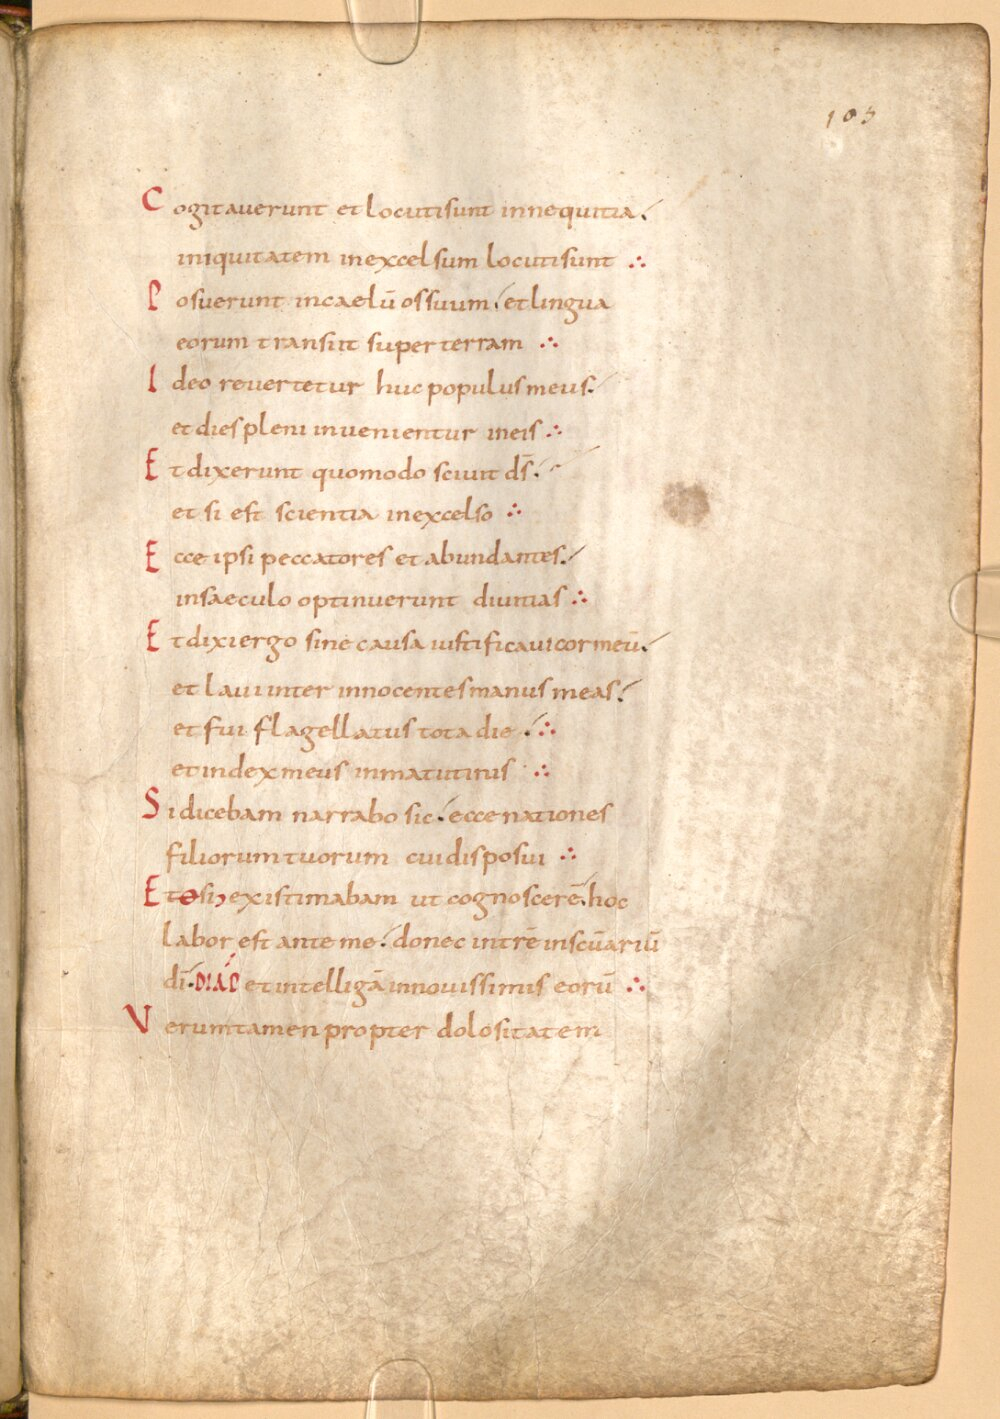 103
Cogitaverunt et locuti sunt in nequitia
iniquitatem in excelsum locuti sunt
Posuerunt in caelū os suum et lingua
eorum transiit super terram
Ideo revertetur huc populus meus
et dies pleni invenientur in eis
Et dixerunt quomodo scivit ds̄
et si est scientia in excelso
Ecce ipsi peccatores et abundantes
in saeculo optinuerunt divitias
Et dixi ergo sine causa iustificavi cor meū
et lavi inter innocentes manus meas
et fui flagellatus tota die
et index meus in matutinis
Si dicebam narrabo sic ecce nationes
filiorum tuorum cui disposui
Et existimabam ut cognoscerē hoc
labor est ante me donec intrē in scūariū
dī et intelligā in novissimis eorū
Verumtamen propter dolositatem